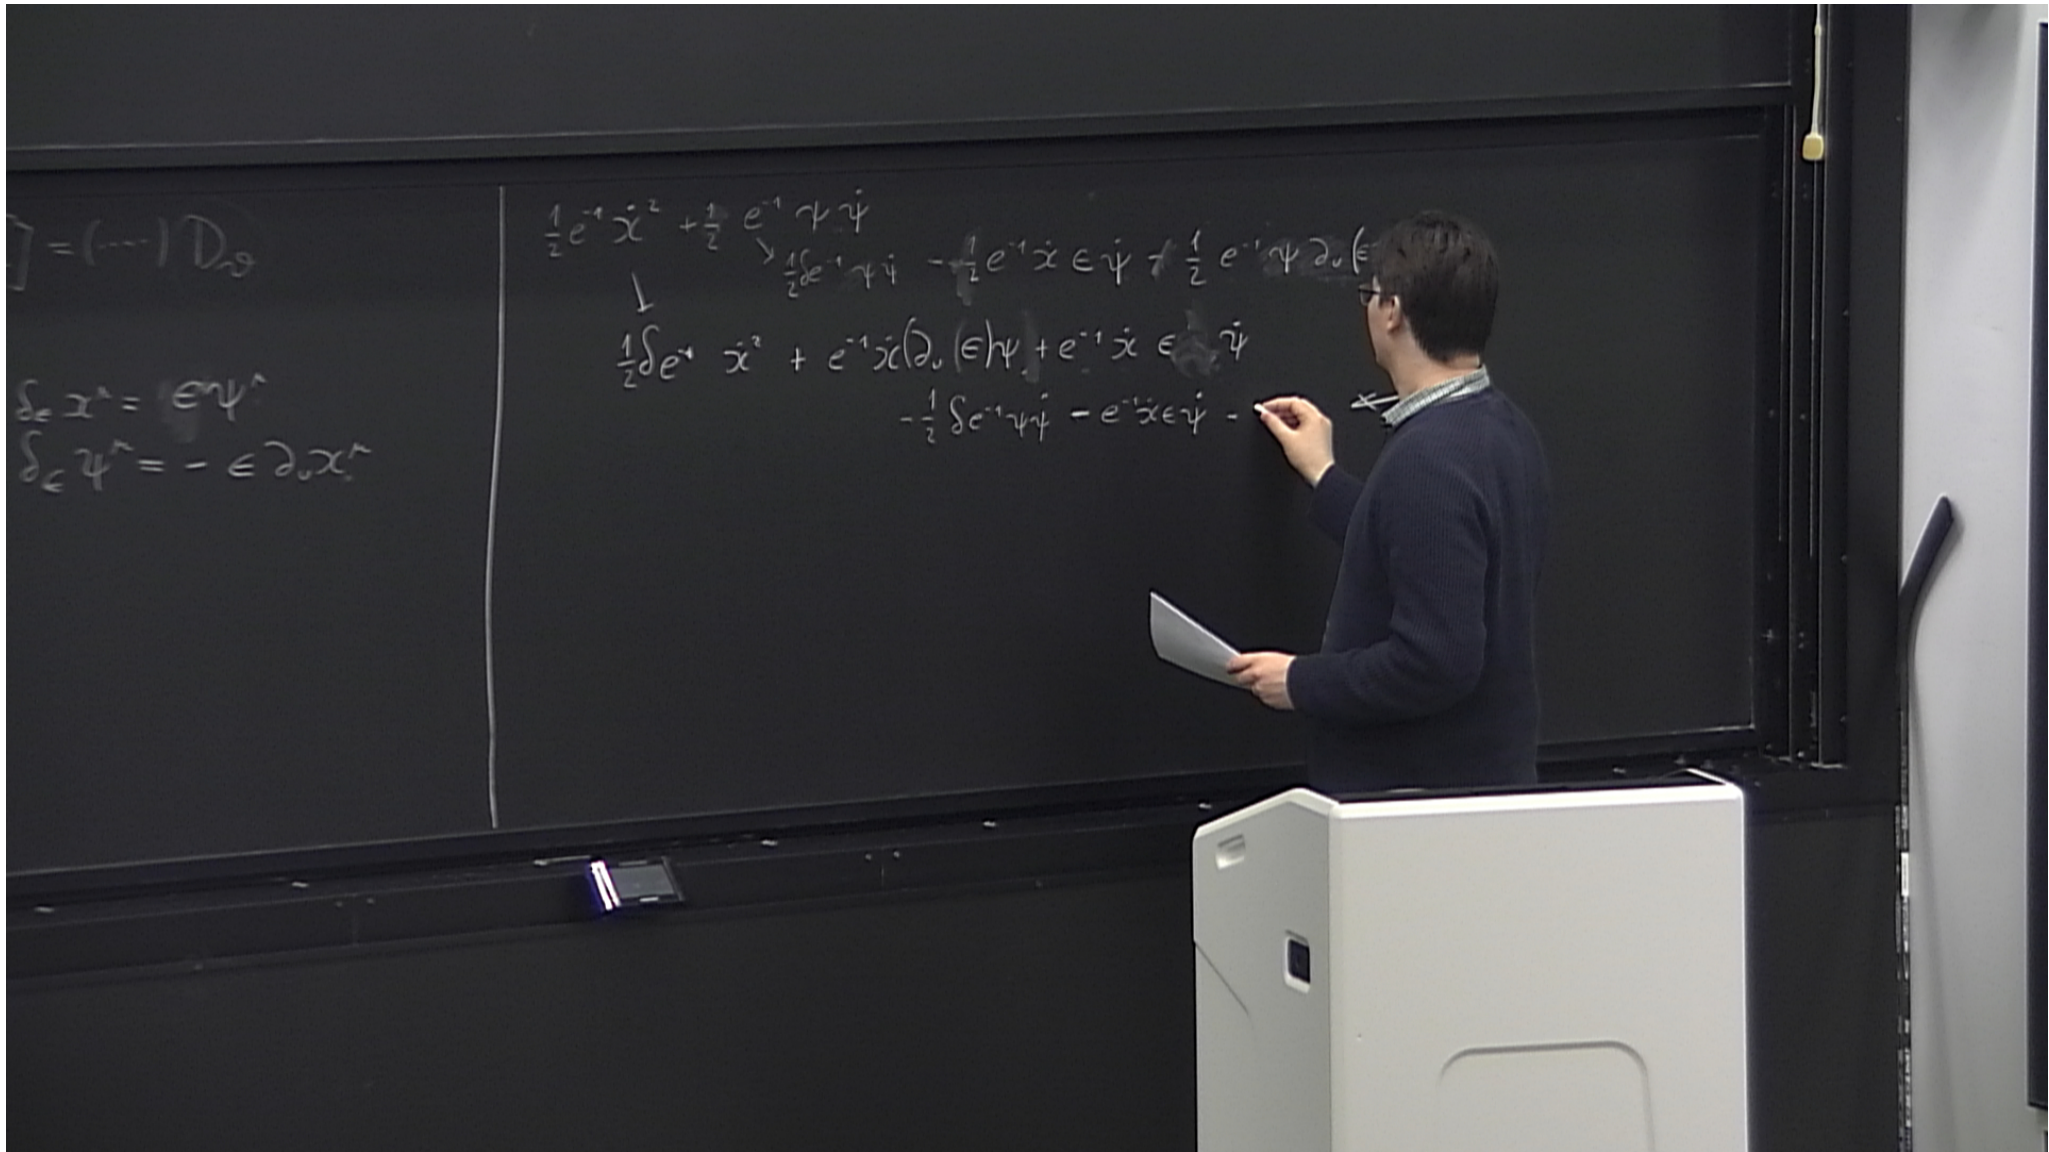 ] = (----) D_v
δ_ϵ x^μ = ϵ ψ^μ
δ_ϵ ψ^μ = - ϵ ∂_v x^μ
½ e⁻¹ ẋ² + ½ e⁻¹ ψ ψ̇
↘ ½ δe⁻¹ ψ ψ̇ - ½ e⁻¹ ẋ ϵ ψ̇ - ½ e⁻¹ ψ ∂_v (ϵ
↓
½ δe⁻¹ ẋ² + e⁻¹ ẋ (∂_v (ϵ) ψ + e⁻¹ ẋ ϵ ψ̇
- ½ δe⁻¹ ψ ψ̇ - e⁻¹ ẋ ϵ ψ̇ -